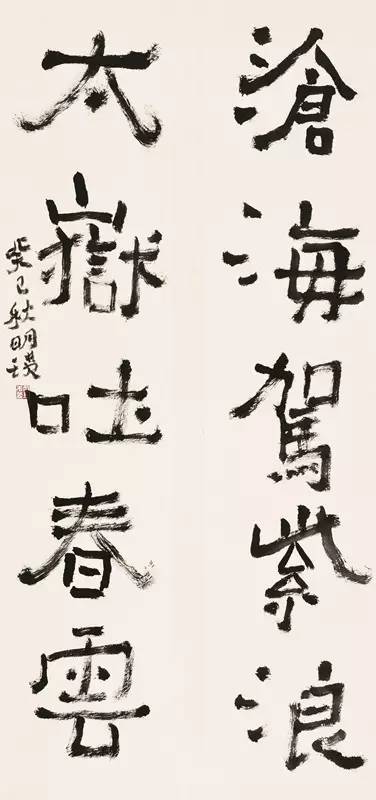 滄海駕紫浪
太嶽吐春雲
癸巳秋明詮